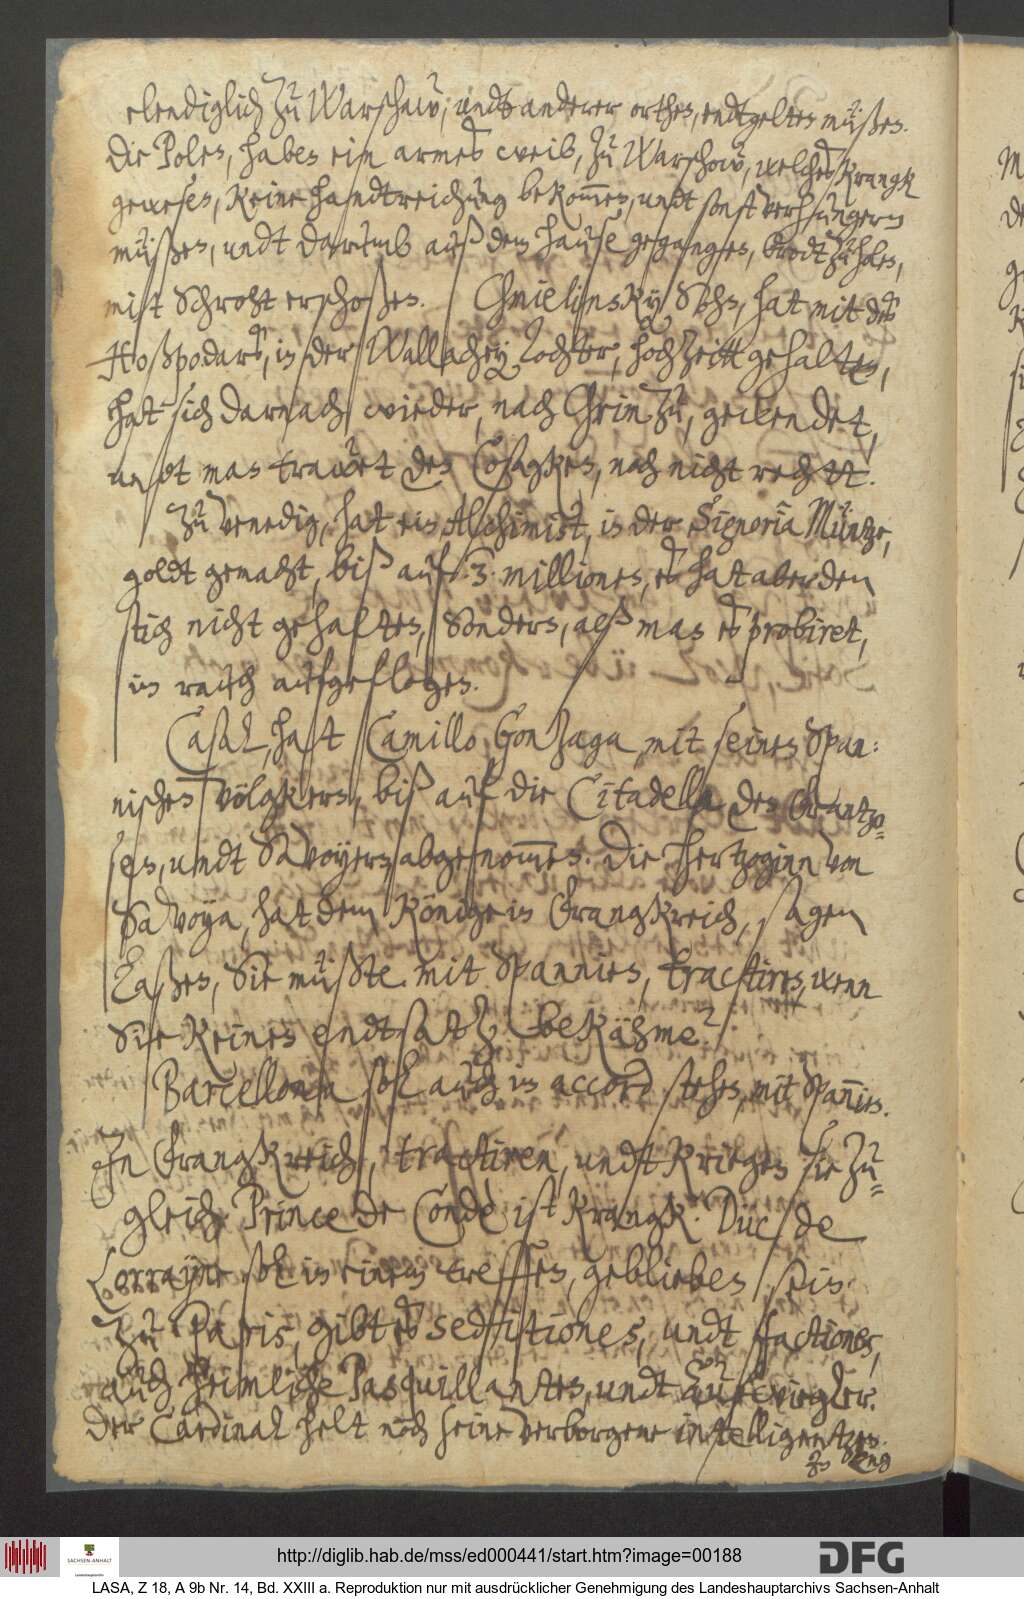 elendiglich zu Warschaw, undt anderer orthen, endtgelten müßen.
Die Polen, haben ein armes weib, zu Warschow, welches Krangk
gewesen, Keine handtreichung bekommen, undt sonst verhungern
müßen, undt darumb auß dem hause gegangen, brodt zu holen,
mit Schroht erschoßen. Chmielinsky Sohn, hat mit des
Hoßpodars, in der Wallachey Tochter, hochzeitt gehalten,
hat sich darnach wieder, nach Chrim zu, gewendet,
undt man trawet den Cosagken, noch nicht recht.
Zu Venedig, hat ein Alchimist, in der Signoria Müntze,
goldt gemacht, biß auf 3. millionen, es hat aber den
stich nicht gehalten, Sondern, alß man es probiret,
in rauch aufgeflogen.
Casal, hatt Camillo Gonzaga, mit seinen Span:
nischen völgkern, biß auf die Citadella den Frantzo=
sen, undt Savoyern abgenommen. Die Hertzoginn von
Savoya, hat dem Könige in Frangkreich, sagen
laßen, Sie müßte mit Spannien, tractiren, wenn
Sie Keinen endtsatz bekähme.
Barcellona soll auch in accord stehen, mit Spannien.
In Frangkreich, tractiren, undt Kriegen sie zu=
gleich. Prince de Condè ist Krangk. Duc de
Lorrayne soll in einem treffen, geblieben sein.
Zu Paris, gibt es seditiones, undt factiones,
auch heimliche Pasquillanten, undt Aufwiegler.
Der Cardinal helt noch seine verborgene intelligentzen.
In Eng
http://diglib.hab.de/mss/ed000441/start.htm?image=00188
SACHSEN-ANHALT
Landeshauptarchiv
DFG
LASA, Z 18, A 9b Nr. 14, Bd. XXIII a. Reproduktion nur mit ausdrücklicher Genehmigung des Landeshauptarchivs Sachsen-Anhalt